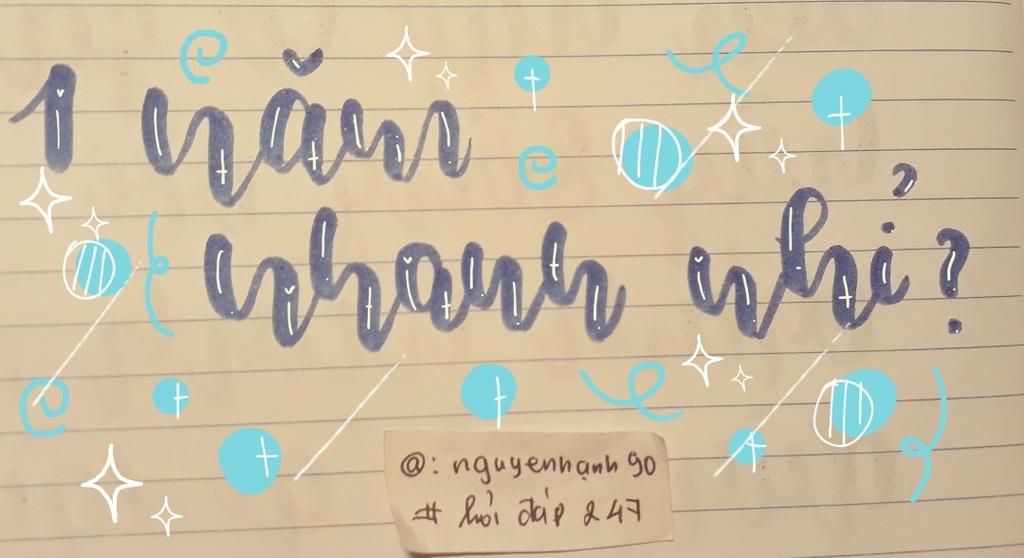 1 năm
nhanh nhỉ?
@: nguyenhạnh 90
# hỏi đáp 247